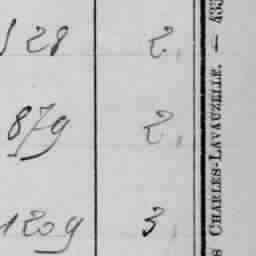 128 2.
879 2.
1209 3.
S CHARLES-LAVAUZELLE. — 433